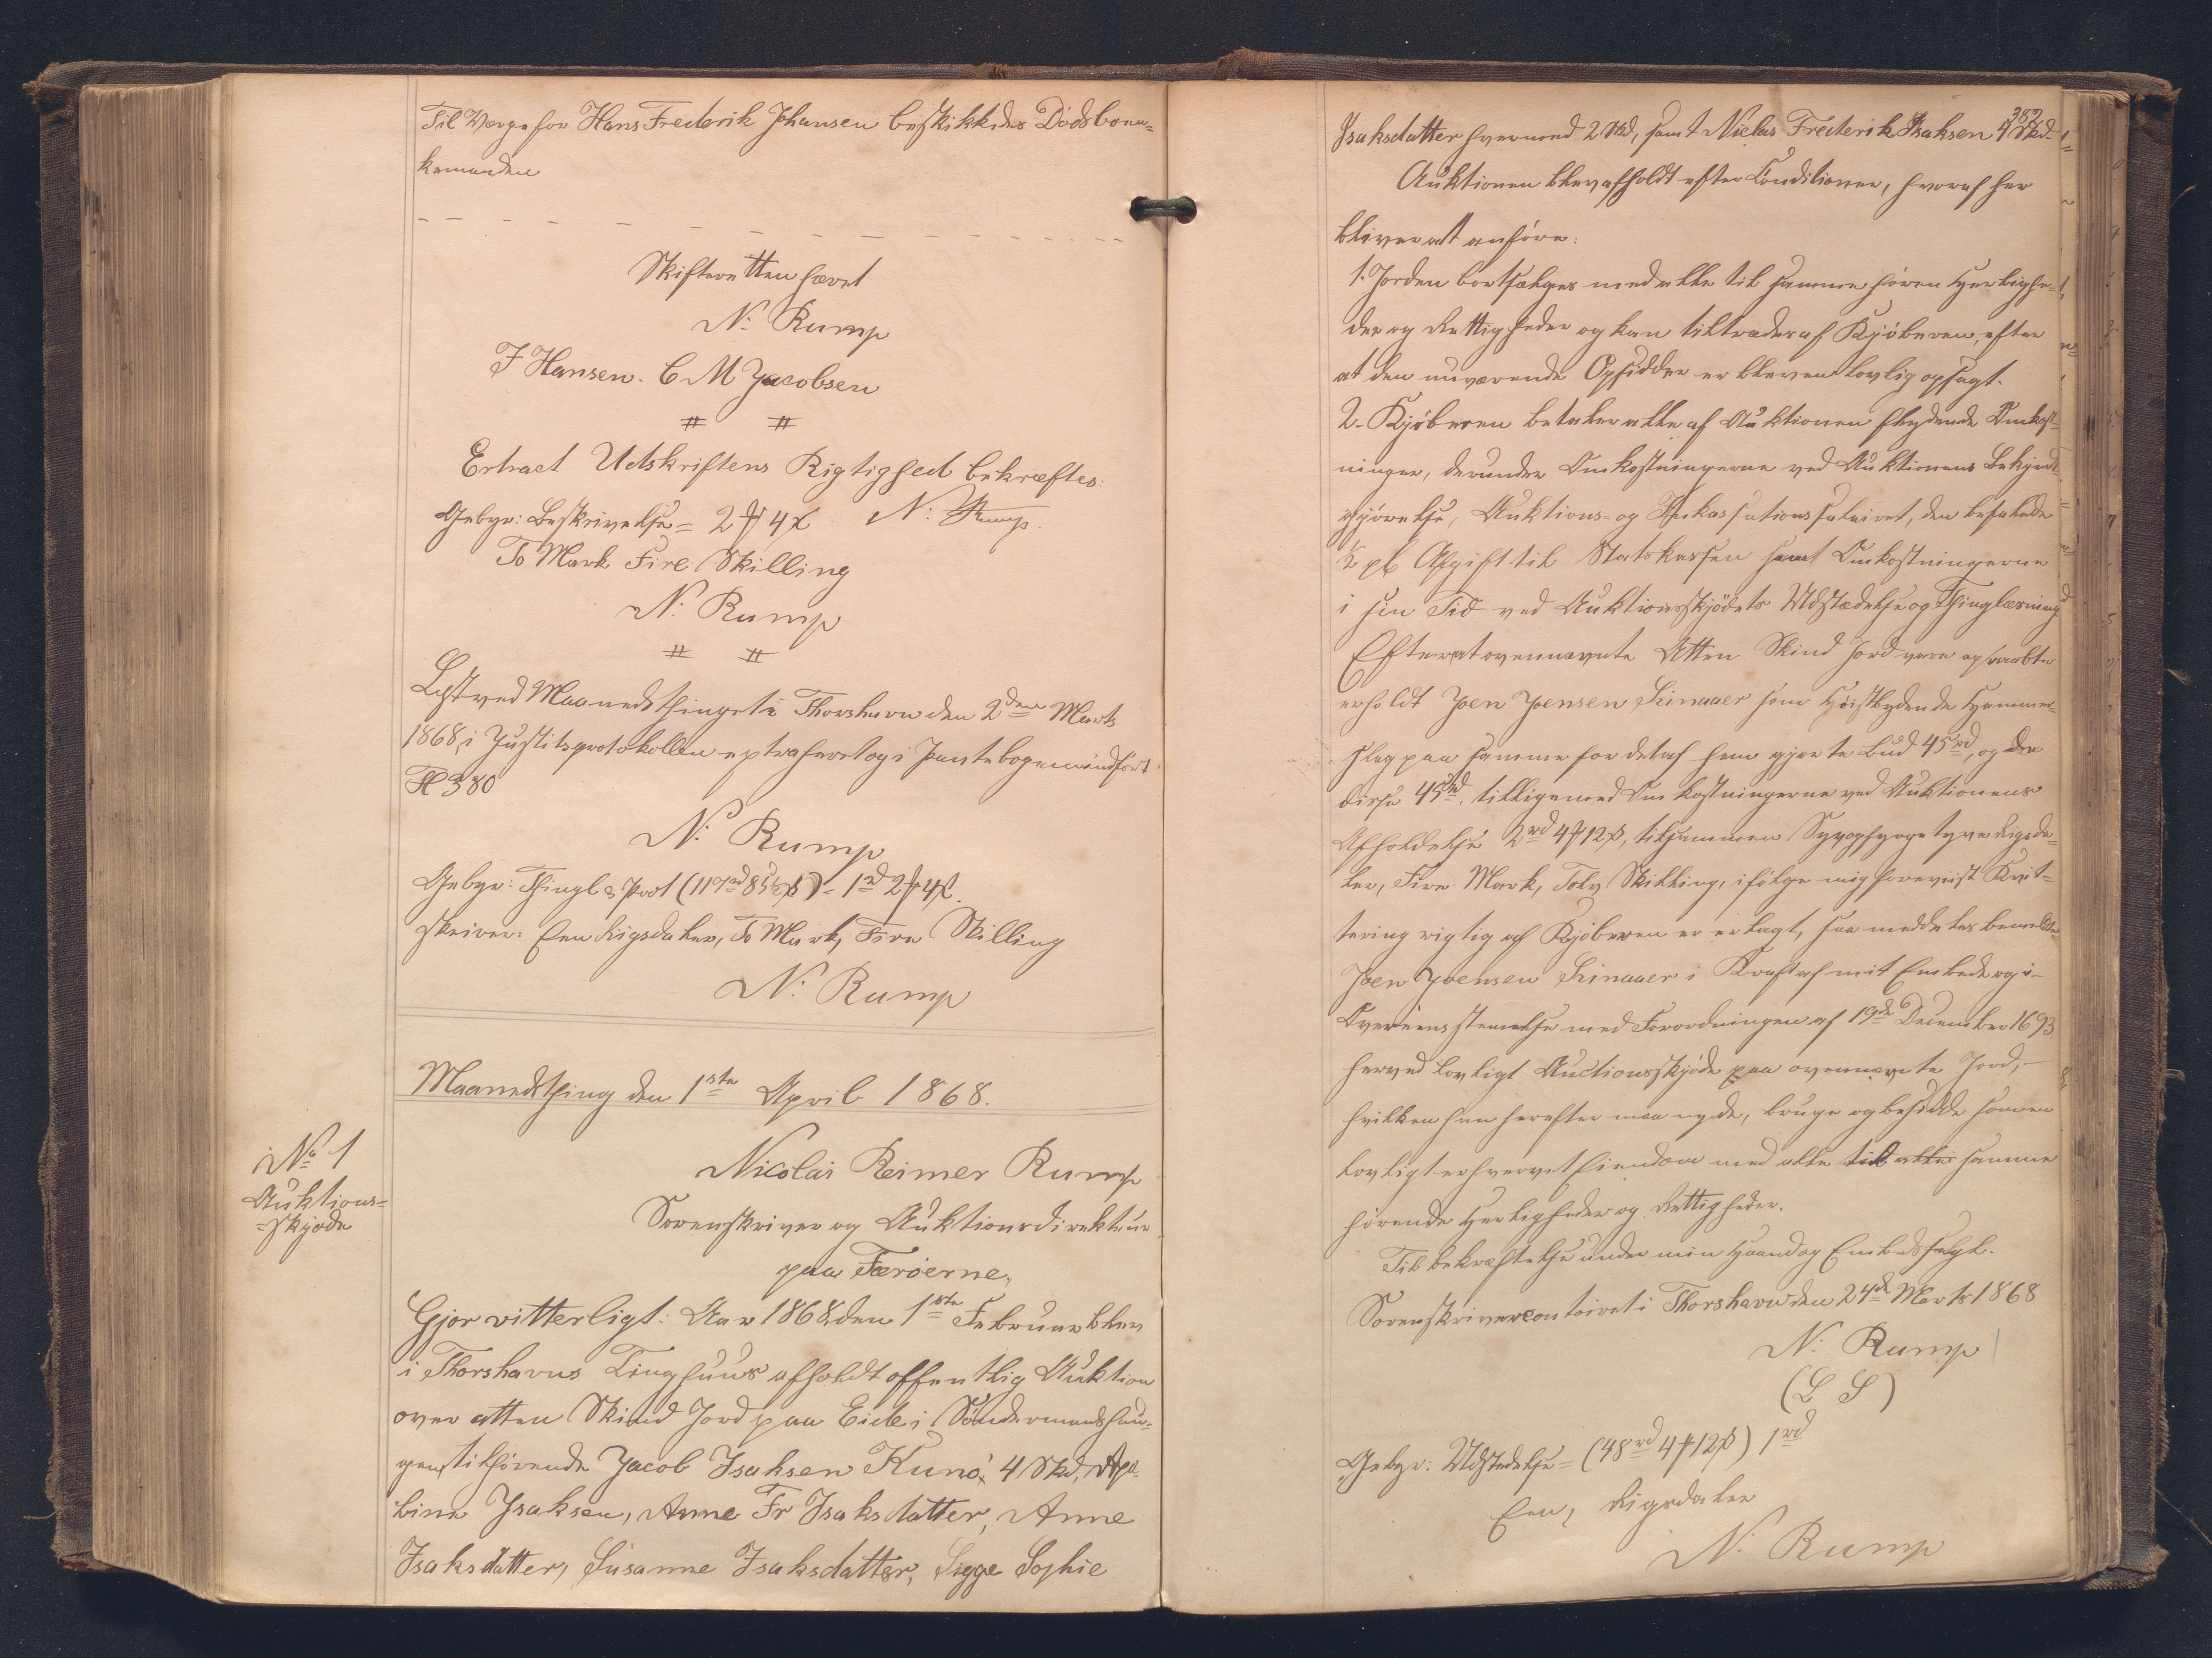 Til Værge for Hans Frederik Johansen beskikkedes Dödsboen-
kemanden
Skifteretten hævet
N. Rump
F Hansen. C M Jacobsen
# #
Extract Udskriftens Rigtighed bekræftes.
Gebyr: Beskrivelse = 2 ₰ 4 ß N. Rump.
To Mark Fire Skilling
N. Rump
# #
Læst ved Maanedsthinget i Thorshavn den 2den Marts
1868, i Justitsprotokollen extraheret og i Pantebogen indført
Fl 380
N. Rump
Gebyr: Thingl & Prot (117rd 85½ß) = 1rd 2₰ 4ß.
skriver: Een Rigsdaler, To Mark, Fire Skilling
N. Rump
Maanedsthing den 1ste April 1868.
No 1
Auktions=
=skjøde
Nicolai Reimer Rump
Sorenskriver og Auktionsdirekteur
paa Færöerne,
Gjør vitterligt: Aar 1868, den 1ste Februar blev
i Thorshavns Tinghuus afholdt offentlig Auktion
over atten Skind Jord paa Eide i Söndermandshau-
gen, tilhörende Jacob Isaksen Kunö, 4 Skd,
bine Isaksen, Anne Fr Isaksdatter, Anne
Isaksdatter, Susanne Isaksdatter, Sigge Sophie
382
Isaksdatter hver med 2 Skd, samt Niclas Frederik Isaksen 4 Skd-
Auktionen blev afholdt efter Conditioner, hvoraf her
bliver at anføre:
1. Jorden bortsælges med alle til samme hören Herlighe=
der og Rettigheder og kan tiltrædes af Kjöberen, efter
at den nuværende Opsidder er bleven lovlig opsagt.
2- Kjöberen betaler alle af Auktionen flydende Omkost-
ninger, derunder Omkostningerne ved Auktionens Bekjendt-
gjörelse, Auktions- og Inkassationssalairet, den befalede
½ pC Afgift til Statskassen samt Omkostningerne
i sin Tid ved Auktionsskjödets Udstædelse og Thinglæsning
Efterat ovennævnte Atten Skind Jord vare opraabte
erholdt Joen Joensen Sumaaer som Höistbydende Hammer-
slag paa samme for det af ham gjorte Bud 45rd, og da
disse 45rd, tilligemed Omkostningerne ved Auktionens
Afholdelse 2rd 4₰ 12ß, tilsammen Syvogfyrgetyve Rigsda-
ler, Fire Mark, Tolv Skilling, ifölge mig foreviist Kvit-
tering rigtig af Kjöberen er erlagt, saa meddeles bemeldte
Joen Joensen Sumaaer i Kraft af mit Embede og i
Overeensstemmelse med Forordningen af 19de December 1693
herved lovligt Auctionsskjöde paa ovennævnte Jord,-
hvilken han herefter maa nyde, bruge og besidde som en
lovligt erhvervet Eiendom med alle til alle samme
hörende Herligheder og Rettigheder.
Til Bekræftelse under min Haand og Embedssegl.
Sorenskrivercontoiret i Thorshavn den 24de Marts 1868
N. Rump
(L S)
Gebyr: Udstedelse = (48rd 4₰ 12ß) 1rd
Een, Rigsdaler
N. Rump